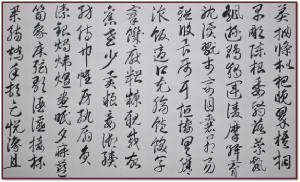 莽抽條枇杷晚翠梧桐
早凋陳根委翳落葉飄
颻遊鵾獨運凌摩絳霄
耽讀翫市寓目囊箱易
輶攸畏屬耳垣牆具膳
飡飯適口充腸飽飫烹
宰飢厭糟糠親戚故
舊老少異糧妾御績
紡侍巾帷房紈扇圓
潔銀燭煒煌晝眠夕寐藍
筍象床弦歌酒讌接杯
舉觴矯手頓足悅豫且